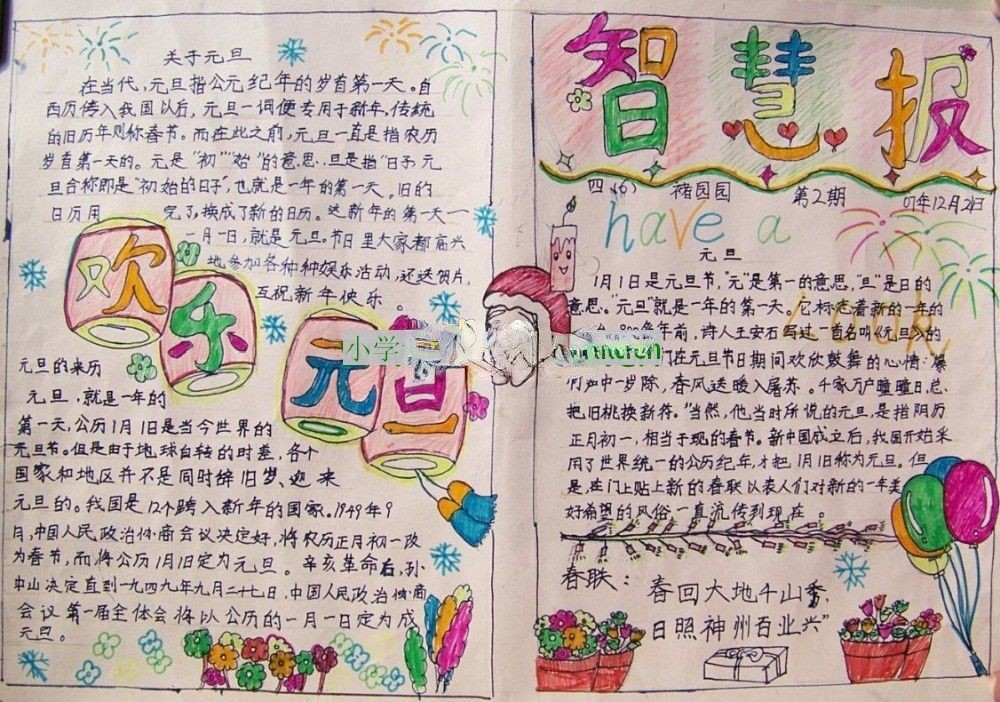 关于元旦
在当代,元旦指公元纪年的岁首第一天。自
西历传入我国以后,元旦一词便专用于新年,传统
的旧历年则称春节。而在此之前,元旦一直是指农历
岁首第一天的。元是"初""始"的意思,旦是指"日子"元
旦合称即是"初始的日子",也就是一年的第一天。旧的
日历用完了,换成了新的日历。这新年的第一天一
一月一日,就是元旦。节日里大家都高兴
地参加各种种娱乐活动,还送贺片,
互祝新年快乐。
欢乐元旦
元旦的来历
元旦,就是一年的
第一天,公历1月1日是当今世界的
元旦节。但是由于地球自转的时差,各个
国家和地区并不是同时辞旧岁、迎来
元旦的。我国是12个跨入新年的国家。1949年9
日,中国人民政治协商会议决定好,将农历正月初一改
为春节,而将公历1月1日定为元旦。辛亥革命后,孙
中山决定直到一九四九年九月二十七日,中国人民政治协商
会议第一届全体会将以公历的一月一日定为成
元旦。
智慧报
四(6) 褚园园 第2期 07年12月2日
have a
元旦
1月1日是元旦节,"元"是第一的意思,"旦"是日的
意思。"元旦"就是一年的第一天。它标志着新的一年的
年前,诗人王安石写过一首名叫《元旦》的
们在元旦节日期间欢欣鼓舞的心情:爆
竹声中一岁除,春风送暖入屠苏。千家万户瞳瞳日,总
把旧桃换新符。"当然,他当时所说的元旦,是指阴历
正月初一,相当于现的春节。新中国成立后,我国开始采
用了世界统一的公历纪年,才把1月1日称为元旦。但
是,在门上贴上新的春联以表人们对新的一年美
好希望的风俗一直流传到现在。
春联:
春回大地千山秀
日照神州百业兴"
小学